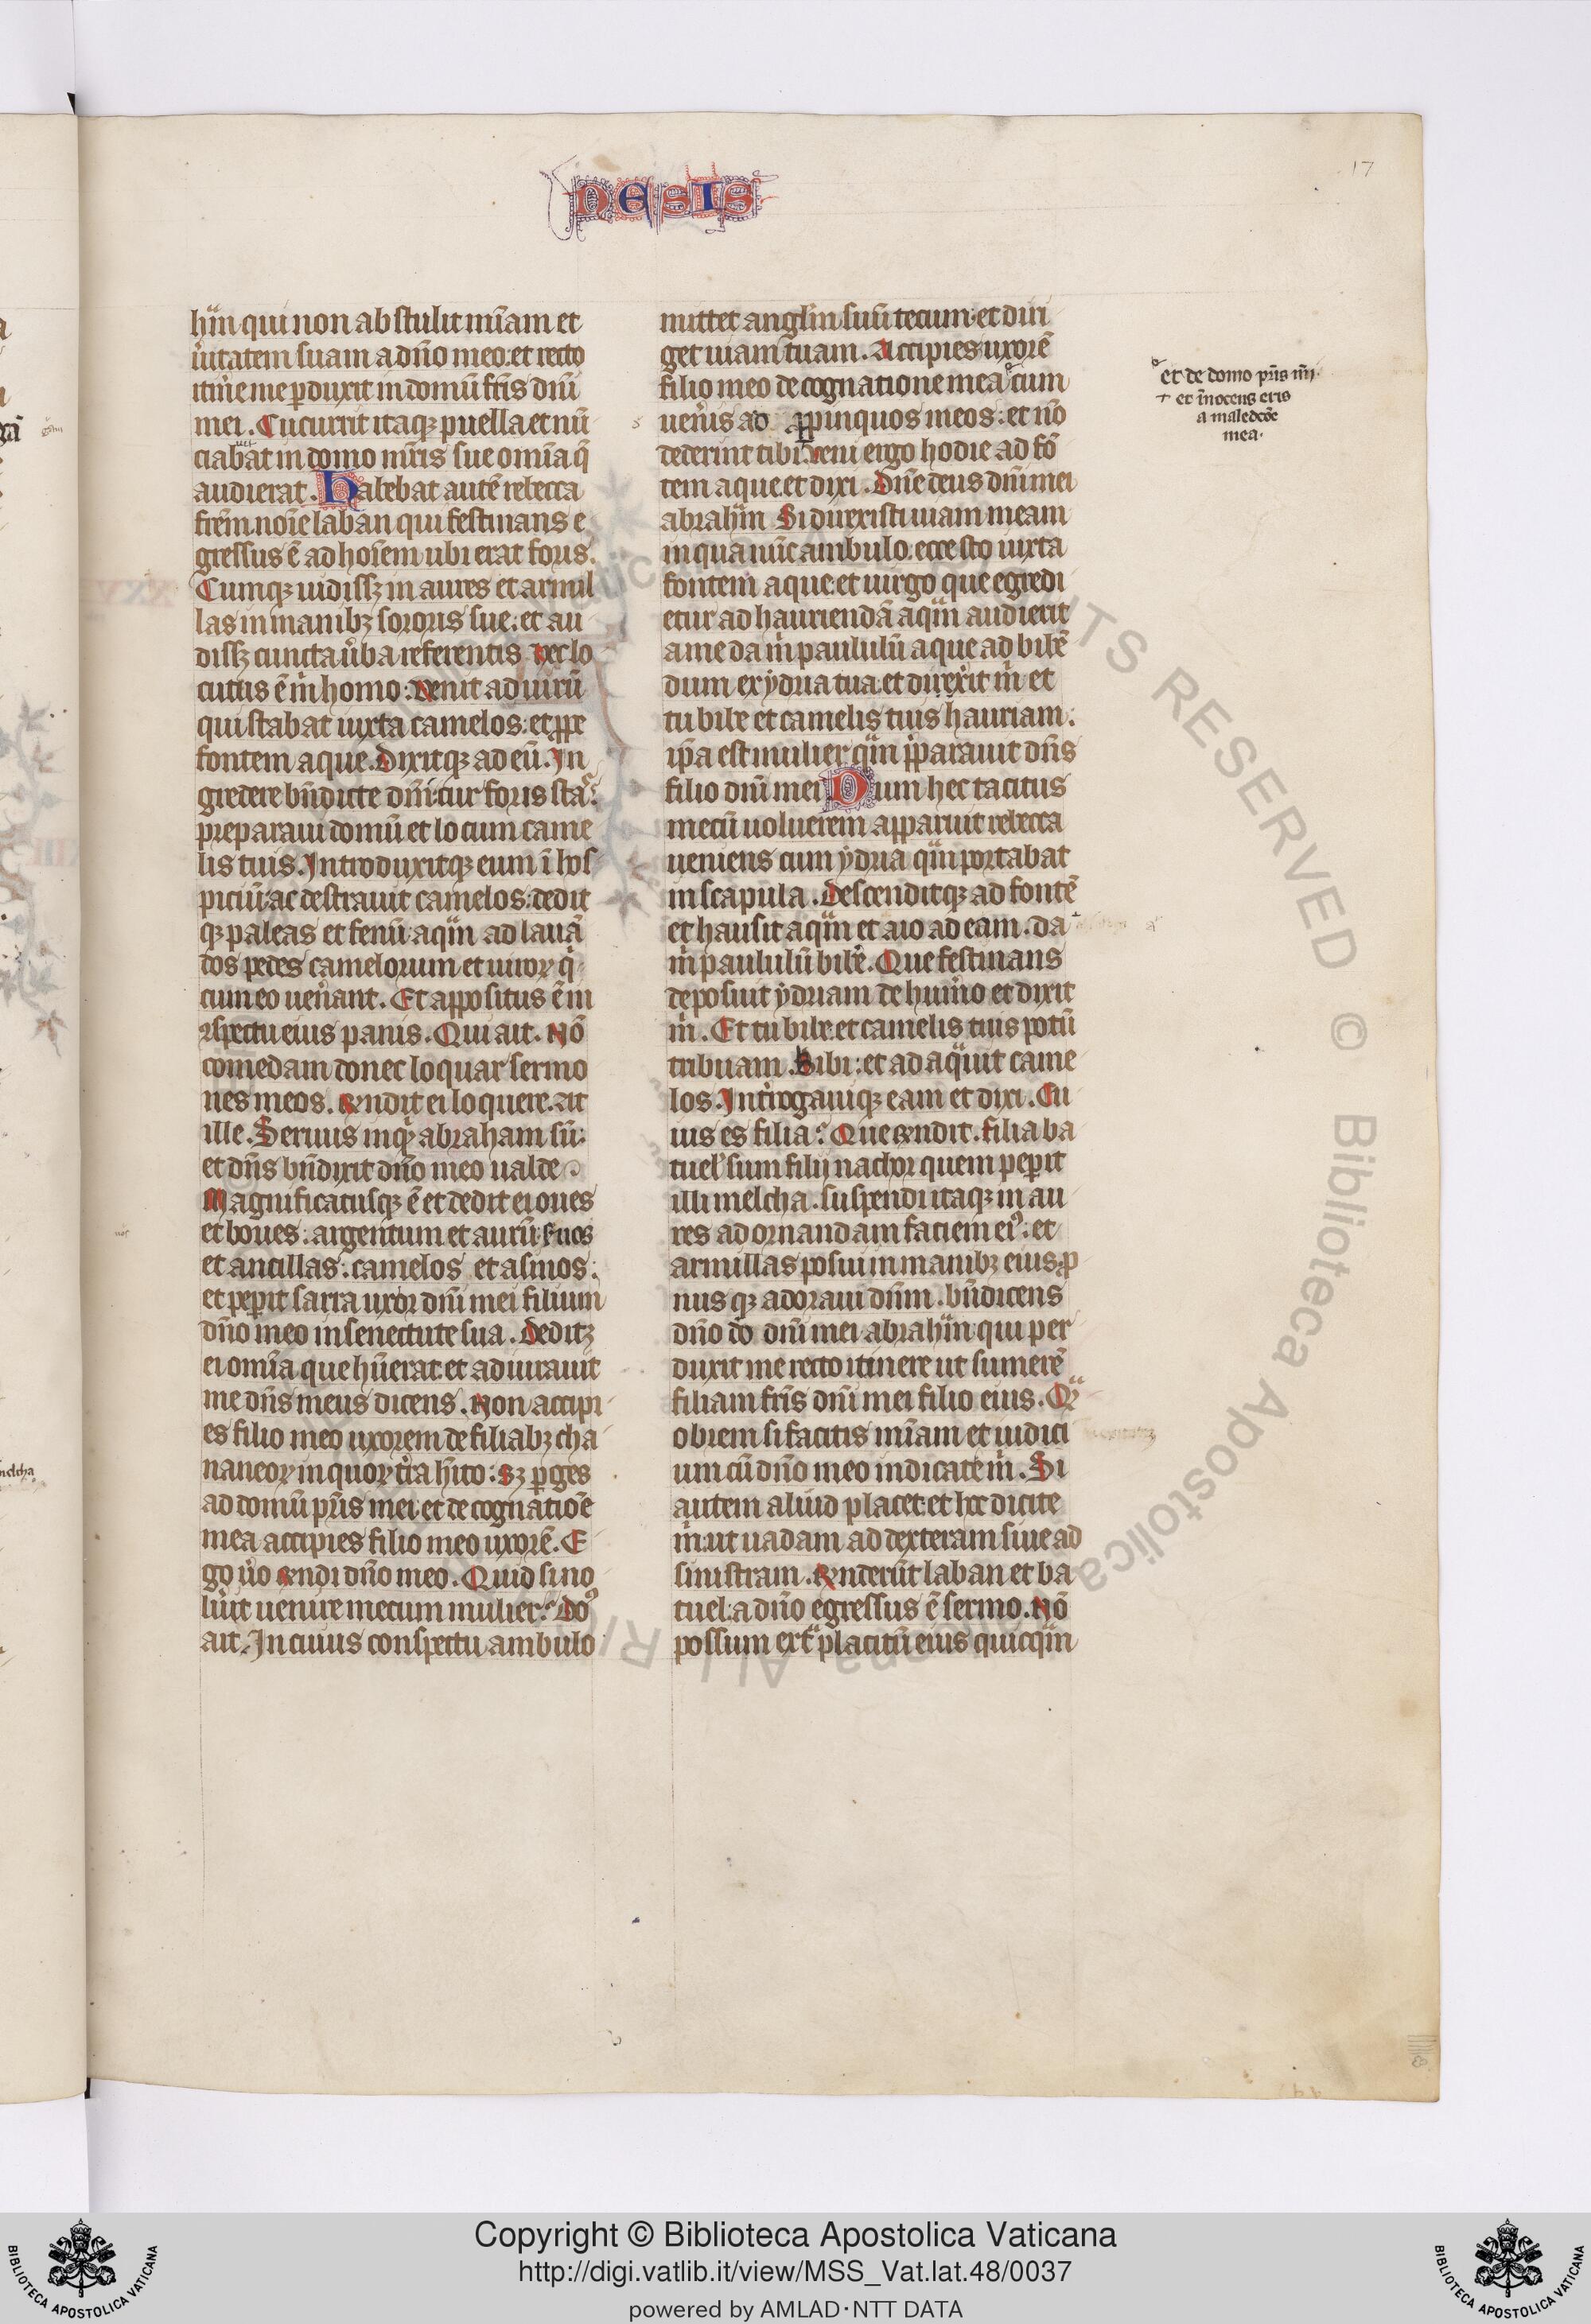 NESIS
17
hā̃m qui non abstulit mīam et
ũitatem suam a dn̄o meo: et recto
itin̄e me p̱duxit in domū fr̄is dn̄i
mei. Cucurrit itaqꝫ puella et nū
ciabat in domo mr̄is sue om̄ia q̄
audierat. Habebat autē rebecca
fr̄em noīe laban qui festinans e
gressus ē ad hoīem ubi erat foris.
Cumqꝫ uidissꝫ in aures et armil
las in manibꝫ sororis sue: et au
dissꝫ cuncta ũba referentis hec lo
cutus ē m̄ homo: uenit ad uirū
qui stabat iuxta camelos: et ꝓpe
fontem aque. Dixitqꝫ ad eū. In
gredere bn̄dicte dn̄i: cur foris stas?
preparaui domū et locum came
lis tuis. Introduxitqꝫ eum ī hos
piciū: ac destrauit camelos: dedit
qꝫ paleas et fenū: aqͣm ad lauā
dos pedes camelorum et uiroꝝ qͥ
cum eo uen̄ant. Et appositus ē in
ꝯspectu eius panis. Qui ait. Nō
comedam donec loquar sermo
nes meos. Rn̄dit ei loquere. at
ille. Seruus inqͥt abraham sū:
et dn̄s bn̄dixit dn̄o meo ualde
Magnificatusqꝫ ē et dedit ei oues
et boues: argentum et aurū: suos
et ancillas: camelos et asinos:
et pep̱it sarra uxor dn̄i mei filium
dn̄o meo in senectute sua. Deditqꝫ
ei om̄ia que hūerat: et adiurauit
me dn̄s meus dicens. Non accipi
es filio meo uxorem de filiabꝫ cha
naneoꝝ in quoꝝ tr̄a h̄ito: Sꝫ p̱ges
ad domū pr̄is mei: et de cognatiōe
mea accipies filio meo uxorē. E
go ũo rn̄di dn̄o meo. Quid si no
lūit uenire mecum mulier? Dn̄s
ait. In cuius conspectu ambulo
mittet angl̄m suū tecum: et diri
get uiam tuam. Accipies uxorē
filio meo de cognatione mea cum
uen̄is ad ꝓpinquos meos: et nō
dederint tibi. Veni ergo hodie ad fō
tem aque et dixi. Dn̄e deus dn̄i mei
abrahā̃m Si direxisti uiam meam
in qua nūc ambulo: ecce sto iuxta
fontem aque: et uirgo que egredi
etur ad hauriendā aqͣm audierit
a me da m̄ paululū aque ad bibē
dum ex ydria tua: et dixerit m̄ et
tu bibe et camelis tuis hauriam:
ip̄a est mulier qͣm p̄parauit dn̄s
filio dn̄i mei. Dum hec tacitus
mecū uoluerem apparuit rebecca
ueniens cum ydria qͣm portabat
in scapula. Descenditqꝫ ad fontē
et hausit aqͣm et aio ad eam. da
m̄ paululū bibe͛. Que festinans
deposuit ydriam de hum̄o et dixit
m̄. Et tu bibe: et camelis tuis potū
tribuam. Bibi: et adaqͣuit came
los. Int̄rogauiqꝫ eam et dixi. Cu
ius es filia? Que rn̄dit. filia ba
tuel' sum filij nachor quem pep̱it
illi melcha. suspendi itaqꝫ in au
res ad ornandam faciem eiꝰ: et
armillas posui in manibꝫ eius: ꝓ
nusqꝫ adoraui dn̄m. bn̄dicens
dn̄o do dn̄i mei abrahā̃m: qui per
duxit me recto itinere ut sumerē
filiam fr̄is dn̄i mei filio eius. Qͣ
obrem si facitis mīam et iudici
um cū dn̄o meo indicate m̄. Si
autem aliud placet: et hoc dicite
m̄: ut uadam ad dexteram siue ad
sinistram. Rn̄derūt laban et ba
tuel: a dn̄o egressus ē sermo. Nō
possum extͣ placitū eius quicqͣm
et de domo pr̄is mī.
et īnocens eris
a maledcōe
mea.
Copyright © Biblioteca Apostolica Vaticana
http://digi.vatlib.it/view/MSS_Vat.lat.48/0037
powered by AMLAD·NTT DATA
BIBLIOTECA APOSTOLICA VATICANA
BIBLIOTECA APOSTOLICA VATICANA